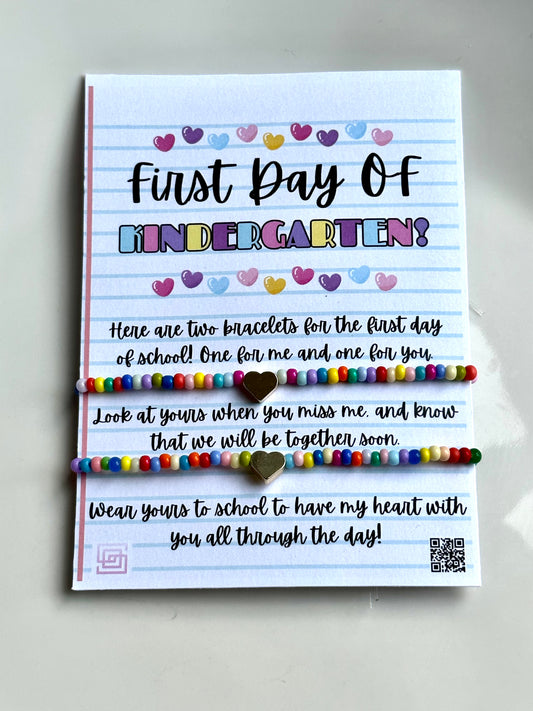 First Day Of
KINDERGARTEN!
Here are two bracelets for the first day
of school! One for me and one for you.
Look at yours when you miss me, and know
that we will be together soon.
Wear yours to school to have my heart with
you all through the day!